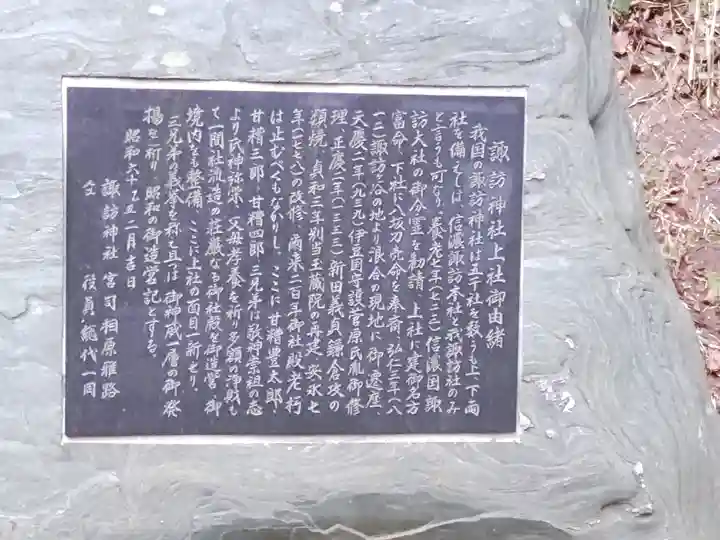 諏訪神社上社御由緒
我国の諏訪神社は五千社を数うも上・下両
社を備えしは、信濃諏訪本社と我諏訪社のみ
と言うも可なり。養老七年(七二三)信濃国諏
訪大社の御分霊を勧請、上社に建御名方
富命、下社に八坂刀売命を奉斎、弘仁三年(八
一二)諏訪ヶ谷の地より浪合の現地に御遷座
天慶二年(九三九)伊豆国守護菅原民胤御修
理、正慶二年(一三三三)新田義貞鎌倉攻の
類焼、貞和三年別当玉蔵院の再建、安永七
年(一七七八)の改修、爾来二百年御社殿老朽
は止むべくもなかりし。ここに甘糟豊太郎、
甘糟三郎、甘糟四郎、三兄弟は敬神崇祖の志
より氏神弥栄、父母孝養を祈り多額の浄財も
て一間社流造の荘厳なる御社殿を御造営、御
境内をも整備、ここに上社の面目一新せり。
三兄弟の義挙を称え且つは御神威一層の御発
揚を祈り、昭和の御造営記とする。
昭和六十乙丑二月吉日
諏訪神社 宮司 相原雅路
役員総代一同